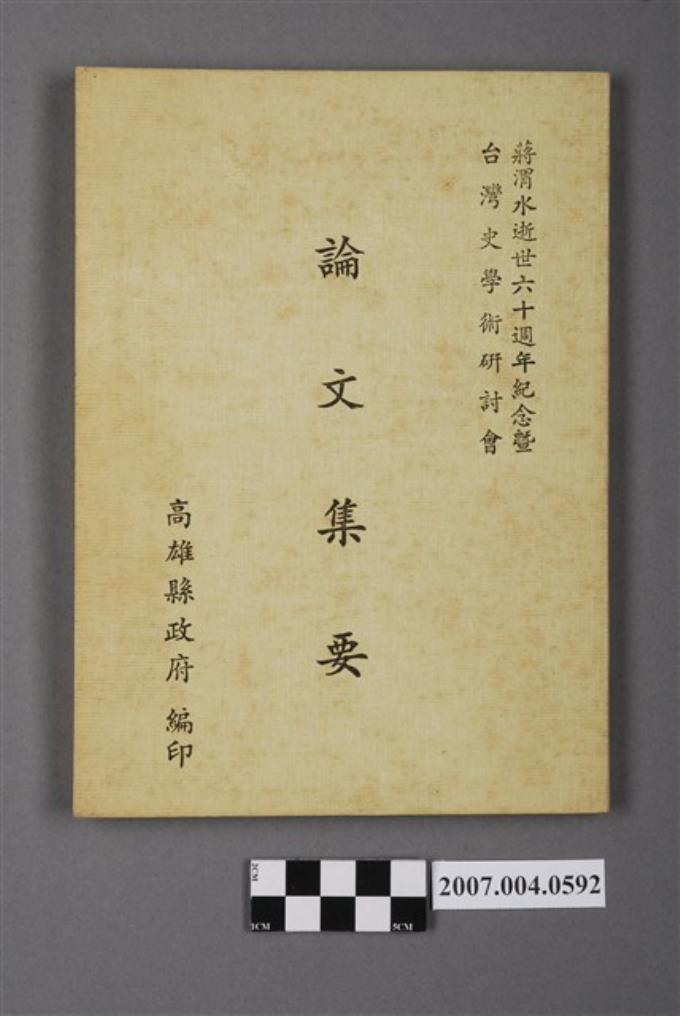 蔣渭水逝世六十週年紀念暨
台灣史學術研討會
論文集要
高雄縣政府 編印
2CM
1CM
5CM
2007.004.0592